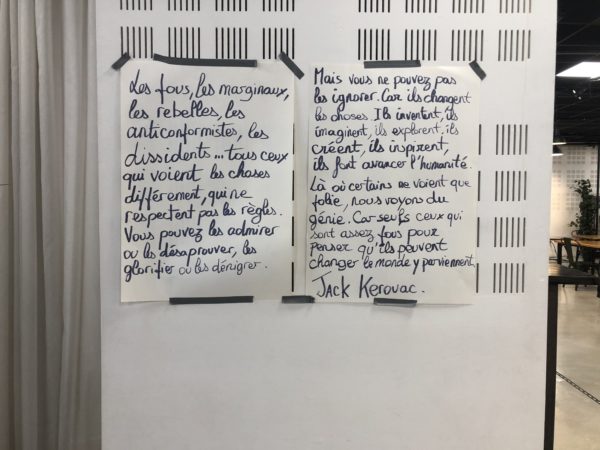 Les fous, les marginaux,
les rebelles, les
anticonformistes, les
dissidents... tous ceux
qui voient les choses
différement, qui ne
respectent pas les règles.
Vous pouvez les admirer
ou les désaprouver, les
glorifier ou les dénigrer.
Mais vous ne pouvez pas
les ignorer. Car ils changent
les choses. Ils inventent, ils
imaginent, ils explorent. ils
créent, ils inspirent,
ils font avancer l'humanité.
Là où certains ne voient que
folie, nous voyons du
génie. Car seuls ceux qui
sont assez fous pour
penser qu'ils peuvent
changer le monde y parviennent.
Jack Kerovac.